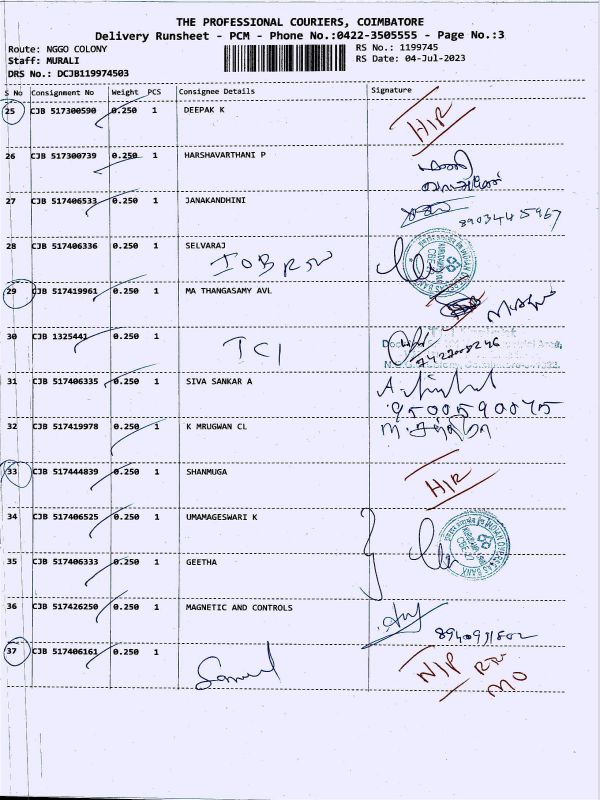 THE PROFESSIONAL COURIERS, COIMBATORE
Delivery Runsheet - PCM - Phone No.:0422-3505555 - Page No.:3
Route: NGGO COLONY
Staff: MURALI
DRS No.: DCJB119974503
RS No.: 1199745
RS Date: 04-Jul-2023
S No Consignment No Weight PCS Consignee Details Signature
25 CJB 517300590 0.250 1 DEEPAK K H/R
26 CJB 517300739 0.250 1 HARSHAVARTHANI P
27 CJB 517406533 0.250 1 JANAKANDHINI 8903445967
28 CJB 517406336 0.250 1 SELVARAJ IOB
29 CJB 517419961 0.250 1 MA THANGASAMY AVL
30 CJB 1325441 0.250 1 TCI
31 CJB 517406335 0.250 1 SIVA SANKAR A
9500590075
32 CJB 517419978 0.250 1 K MRUGWAN CL
33 CJB 517444839 0.250 1 SHANMUGA H/R
34 CJB 517406525 0.250 1 UMAMAGESWARI K
INDIAN OVERSEAS BANK
35 CJB 517406333 0.250 1 GEETHA
36 CJB 517426250 0.250 1 MAGNETIC AND CONTROLS
37 CJB 517406161 0.250 1 N/P